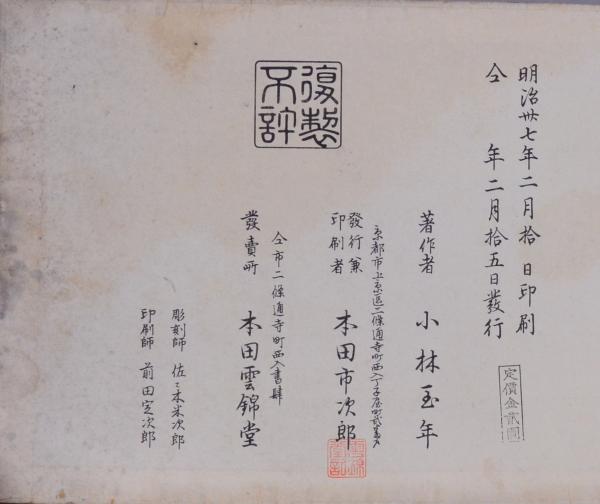 明治卅七年二月拾日印刷
仝年二月拾五日發行
定價金貳圓
復製
不許
著作者 小林玉年
京都市上京區二條通寺町西入丁子屋町
發行兼
印刷者 本田市次郎
仝市二條通寺町西入書肆
發賣所 本田雲錦堂
彫刻師 佐々木米次郎
印刷師 前田定次郎